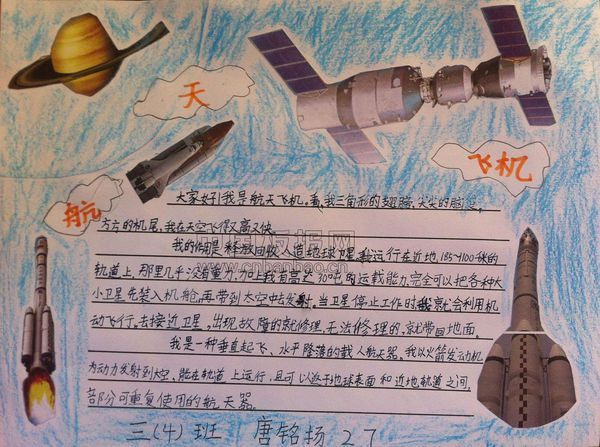 航
天
飞机
大家好!我是航天飞机。看,我三角形的翅膀、尖尖的脑
方方的机尾,我在天空飞得又高又快。
我的作用是释放回收人造地球卫星。我运行在近地185-1100千米的
轨道上,那里几乎没有重力,加上我有高达30吨的运载能力,完全可以把各种大
小卫星先装入机舱,再带到太空中去发射。当卫星停止工作时,我就会利用机
动飞行。去接近卫星。出现故障的就修理,无法修理的,就带回地面。
我是一种垂直起飞、水平降落的载人航天器。我以火箭发动机
为动力发射到太空,能在轨道上运行,且可以返于地球表面和近地轨道之间,
部分可重复使用的航天器。
三(4)班 唐铭扬 27
www.chanbao.cn